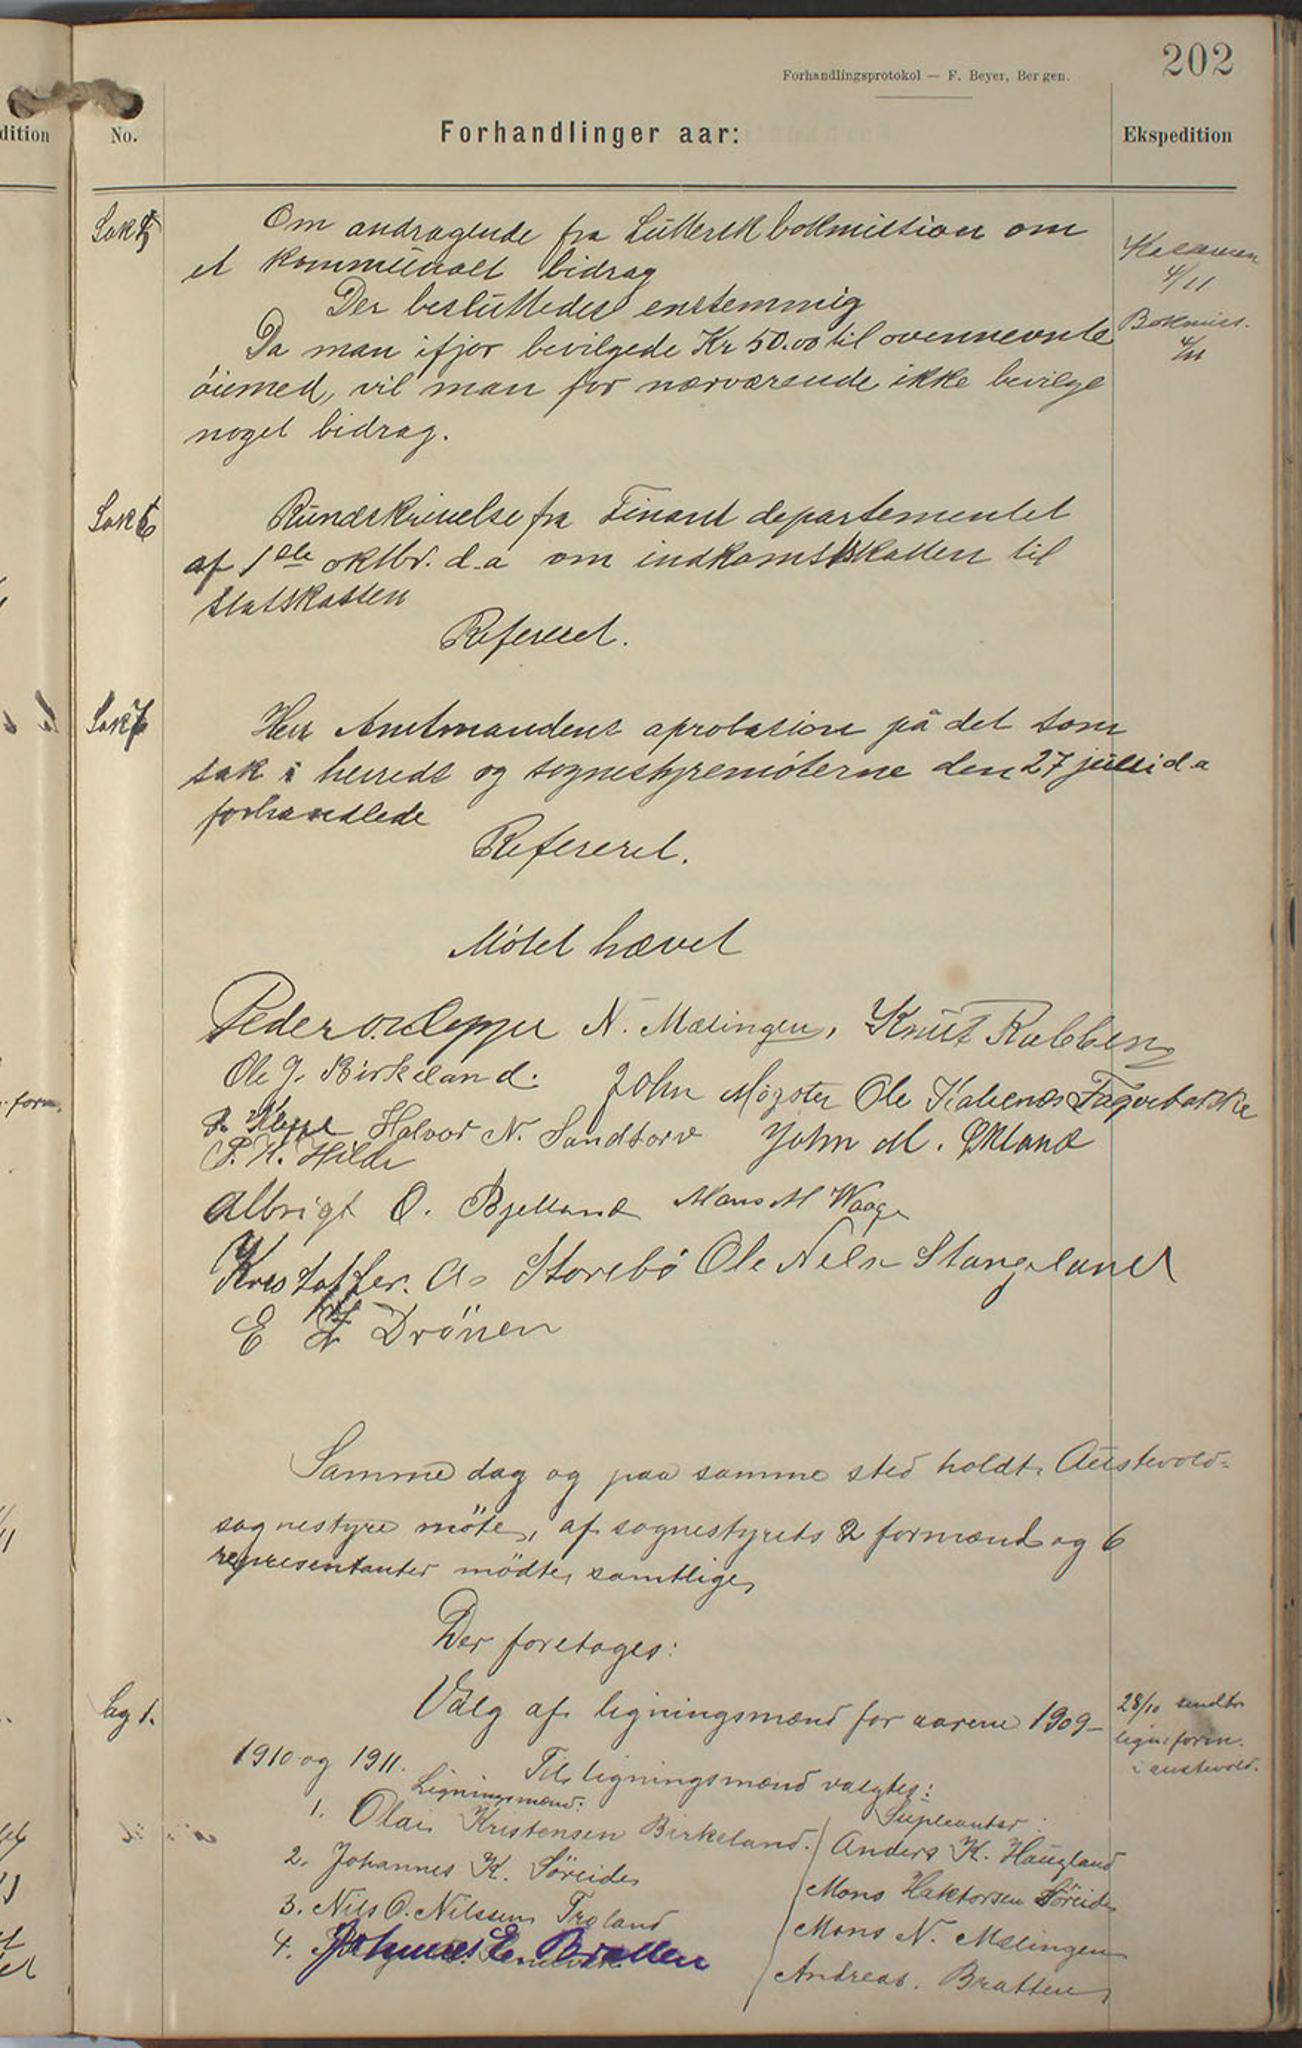 202
Forhandlingsprotokol — F. Beyer, Bergen.
dition
No.
Forhandlinger aar:
Ekspedition
Sak 5
Om andragende fra Luttersk bokmission om
et kommunalt bidrag
4/11
Der besluttedes enstemmig
Da man ifjor bevilgede Kr 50.00 til ovennevnte
Bokmiss.
4/11
öiemed, vil man for nærværende ikke bevilge
noget bidrag.
Sak 6
Rundskrivelse fra Finans departementet
af 1ste oktbr. d.a om indkomstskatten til
statskassen
Refereret.
Sak 7
Herr Amtmandens aprobasion på det som
sak i herreds og sognestyremöterne den 27 juli d.a
forhandlede
Refereret.
Mötet hævet
Peder O. Kleppe N. Mælingen, Knut Rabben
Ole J. Birkeland. John Møgster Ole Kalvenes Fagerbakke
Kleppe Halvor N. Sandtorv John M. Økland
Hilde
Albrigt O. Bjelland Mons M Waage
Kristoffer. As Storebö Ole Nels Stangeland
E Drönen
form.
Samme dag og paa samme sted holdt Austevold=
sognestyre möte, af sognestyrets 2 formænd og 6
representanter mödte samtlige,
Der foretages:
Sag 1.
Valg af ligningsmænd for aarene 1909-
28/10 sendt
lign. form.
i austevold.
1910 og 1911. Til ligningsmænd valgtes:
Ligningsmænd: Supleanter:
1. Olai Kristensen Birkeland. Anders K. Haugland
2. Johannes K. Söreide Mons Haktorsen Söreide
3. Nils O. Nilssen Troland Mons N. Mælingen
4. Johannes E. Bratten Andreas. Bratten